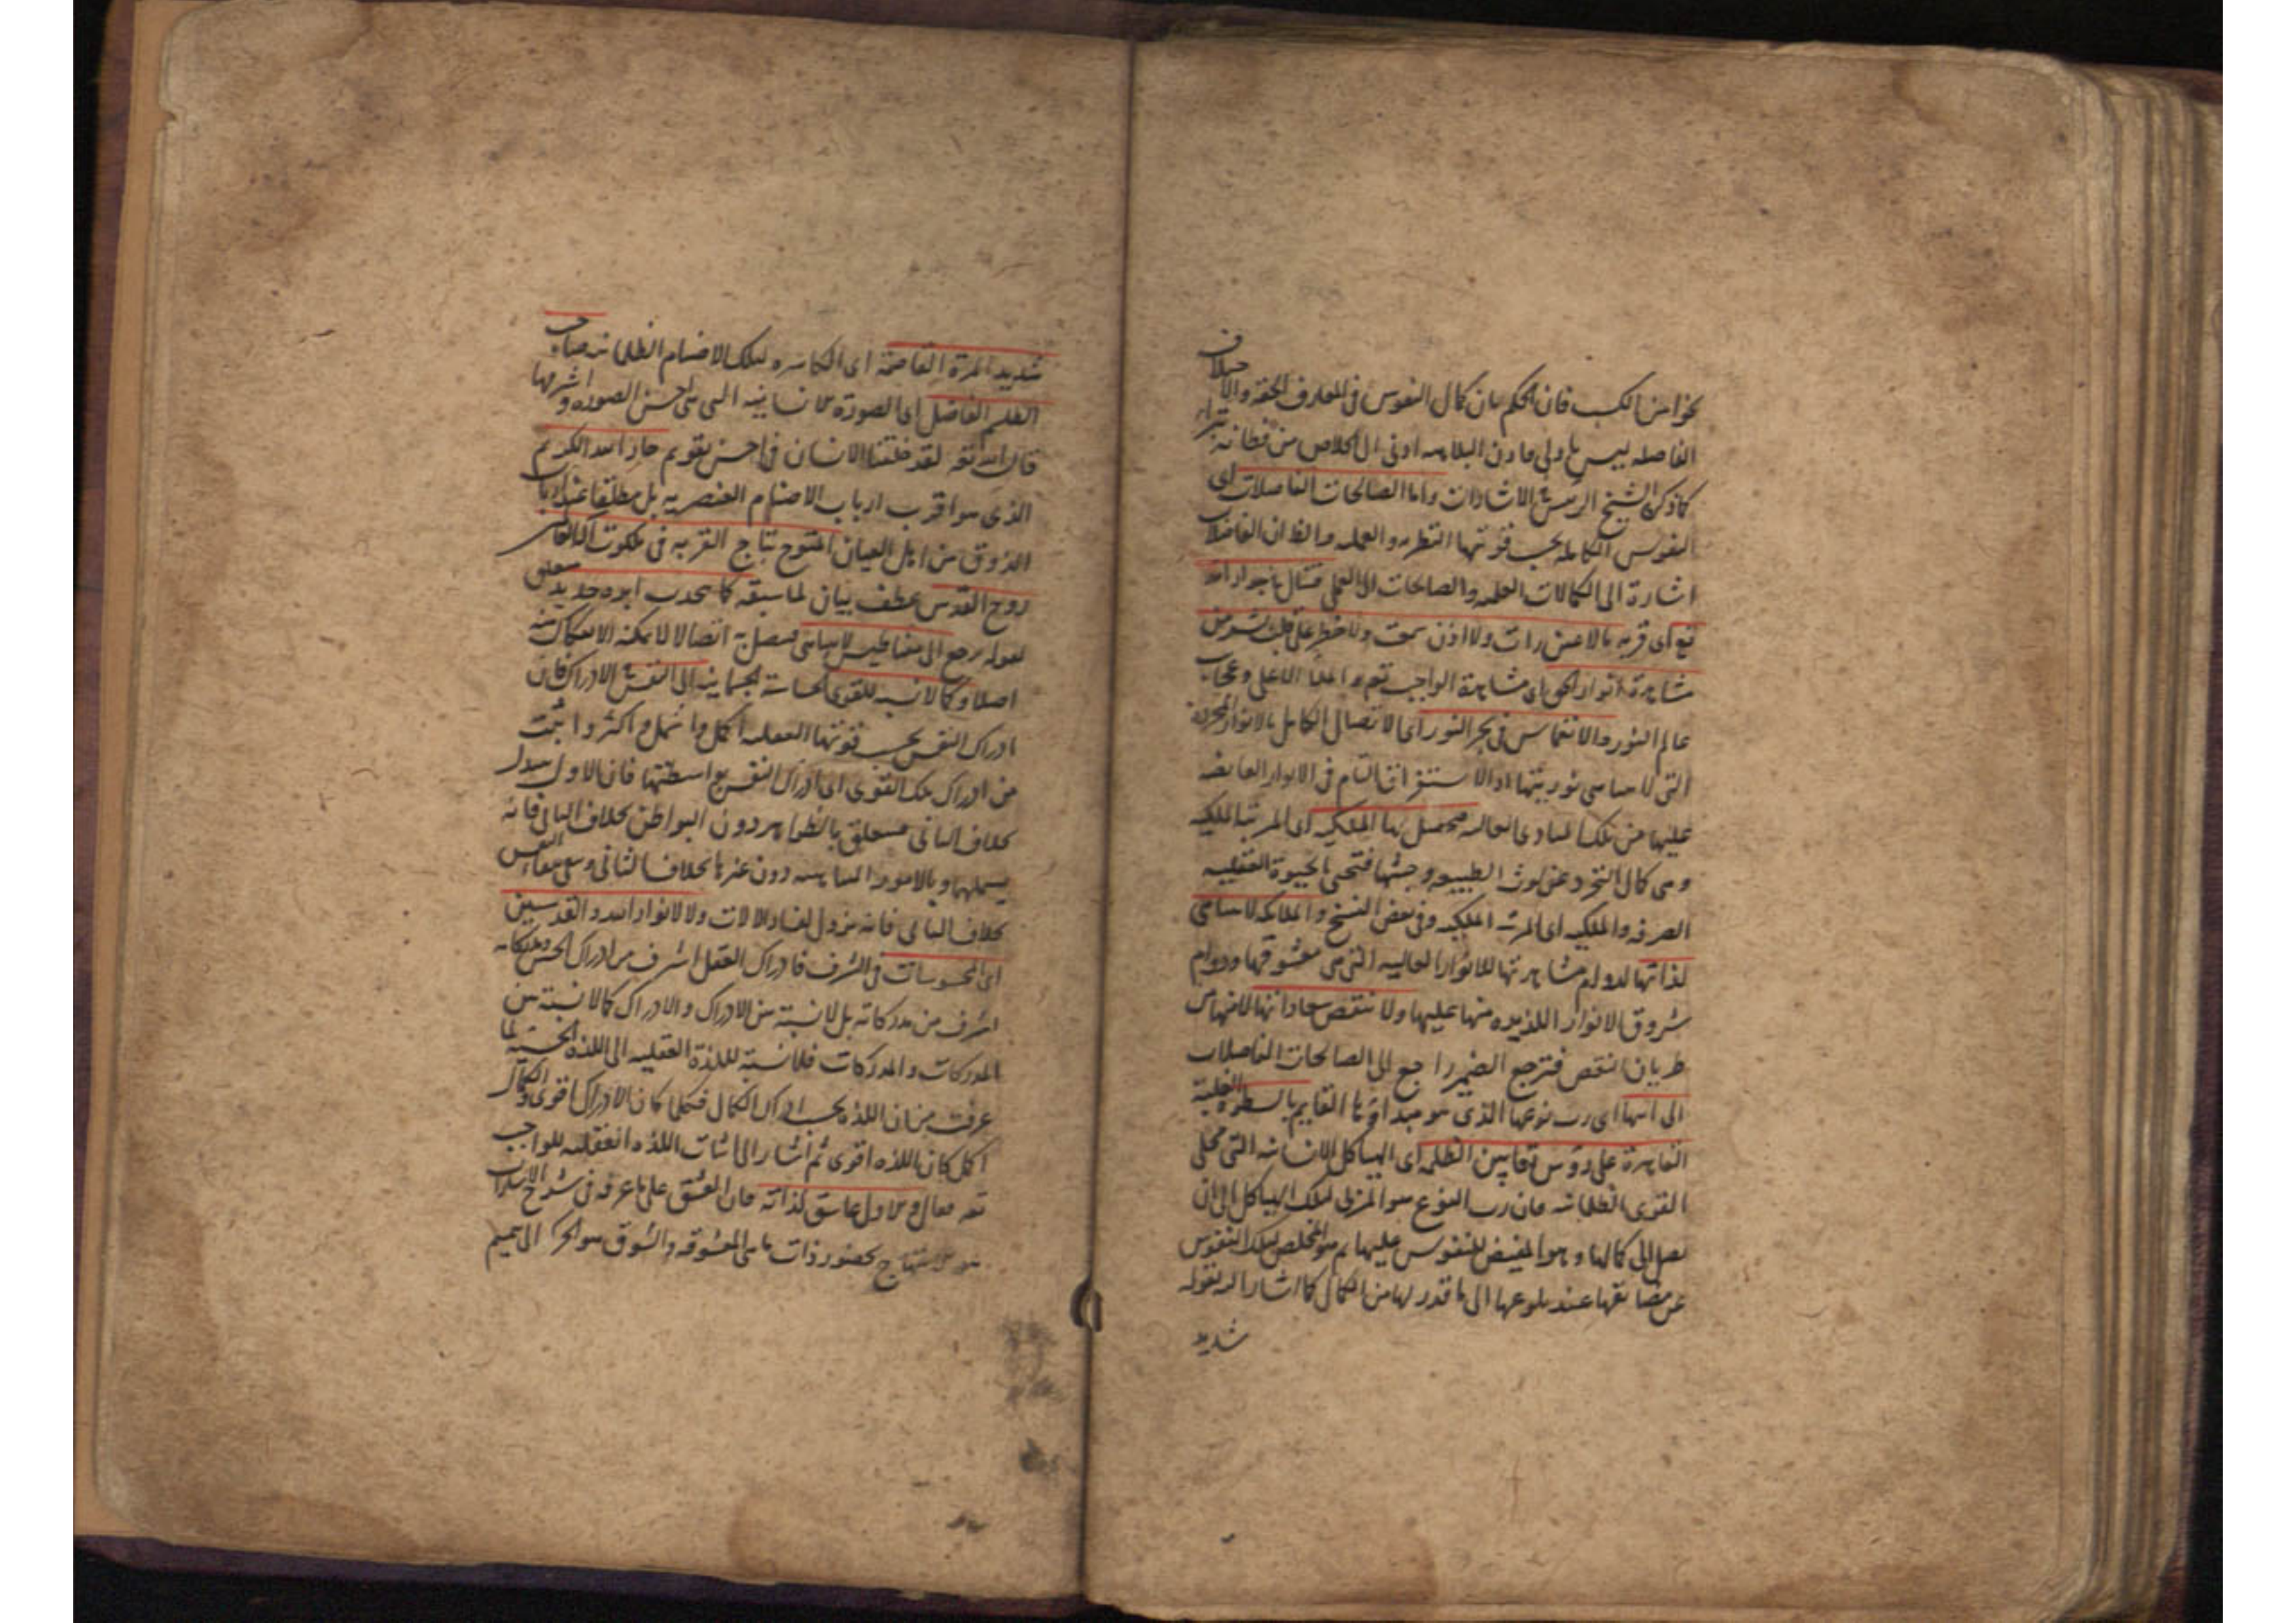 نحو امن الكسب فان الحكم بان كمال النفوس فى المعارف الحقة والاخلاق
الفاضله ليس باولى ما دون البلاهه ادنى الى الخلاص من فطانة بتراء
كما ذكره الشيخ الرئيس فى الاشارات واما الصالحات الفاضلات اى
النفوس الكامله بحسب قوتيها النظريه والعمليه والظ ان الفاضلات
اشارة الى الكمالات العلميه والصالحات الى العملى فتنال باجوار الله
تع اى قربه ما لا عين رات ولا اذن سمعت ولا خطر على قلب بشر من
مشاهدة انوار الحق اى مشاهدة الواجب تعم والملا الاعلى وعجايب
عالم النور والانغماس فى بحر النور اى الاتصال الكامل بالانوار المجردة
التى لا يتناهى نوريتها او الاستغراق التام فى الانوار الفايضه
عليها من تلك المبادى العاليه فيحصل لها الملكيه اى المرتبة الملكيه
وهى كمال التجرد عن لوث الطبيعه وخبثها فتحيى الحيوة العقليه
الصرفه والملكيه اى المرتبه الملكيه وفى بعض النسخ والملايكه لا يتناهى
لذاتها لدوام مشاهدتها للانوار العاليه التى هى معشوقها ودوام
شروق الانوار اللذيذه منها عليها ولا تنقص سعاداتها لانها من
طريان النقص فترجع الضمير راجع الى الصالحات الفاضلات
الى ابيها اى رب نوعها الذى هو مبداؤها القايم بالسطوة العلية
القاهرة على رؤس تماثيل الظلمه اى الهياكل الانسانيه التى محلى
القوى الظلمانيه فان رب النوع هو المربى لتلك الهياكل الى ان
تصل الى كمالها وهو المفيض للنفوس عليها ثم هو المخلص لتلك النفوس
عن مضائقها عند بلوغها الى ما قدر لها من الكمال كما اشار اليه بقوله
شديد
شديد المرة القاصمة اى الكاسره لتلك الاصنام الظلمانيه صاحب
الطلسم الفاضل اى الصورة الانسانيه التى هى احسن الصور واشرفها
قال الله تعم لقد خلقنا الانسان فى احسن تقويم جار الله الكريم
الذى هو اقرب ارباب الاصنام العنصريه بل مطلقا عند ارباب
الذوق من اهل العيان المتوج بتاج القربه فى ملكوت اله العالمين
روح القدس عطف بيان لما سبقه كما ينجذب ابره حديد
لقوله يرجع الى مغناطيس لا يتناهى فيتصل به اتصالا لا يمكنه الانفكاك منه
اصلا وكما لا نسبه للقوى الحاسة الجسمانيه الى النفس فى الادراك فان
ادراك النفس بحسب قوتها العقليه اكمل واشمل واكثر واثبت
من ادراك تلك القوى اى ادراك النفس بواسطتها فان الاول
بخلاف الثانى متعلق بالظواهر دون البواطن بخلاف الثانى فانه
يشملهما وبالامور المتناهيه دون غيرها بخلاف الثانى وببقاء النفس
بخلاف الثانى فانه يزول بفناء الالات ولا لانوار الله والقدسيين
اى المحسوسات فى الشرف فادراك العقل اشرف من ادراك الحس ومدركاته
اشرف من مدركاته بل لا نسبة بين الادراك والادراك كما لا نسبة بين
المدركات والمدركات فلا نسبة للذة العقليه الى اللذه الحسية لما
عرفت من ان اللذه بحسب ادراك الكمال فكلما كان الادراك اقوى والكمال
اكمل كان اللذه اقوى ثم اشار الى اثبات اللذه العقليه للواجب
تعم فقال والاول عاشق لذاته فان العشق على ما عرفه فى شرح الاشارات
هو الابتهاج بحضور ذات ما هى المعشوقه والشوق هو الحركة الى تتميم